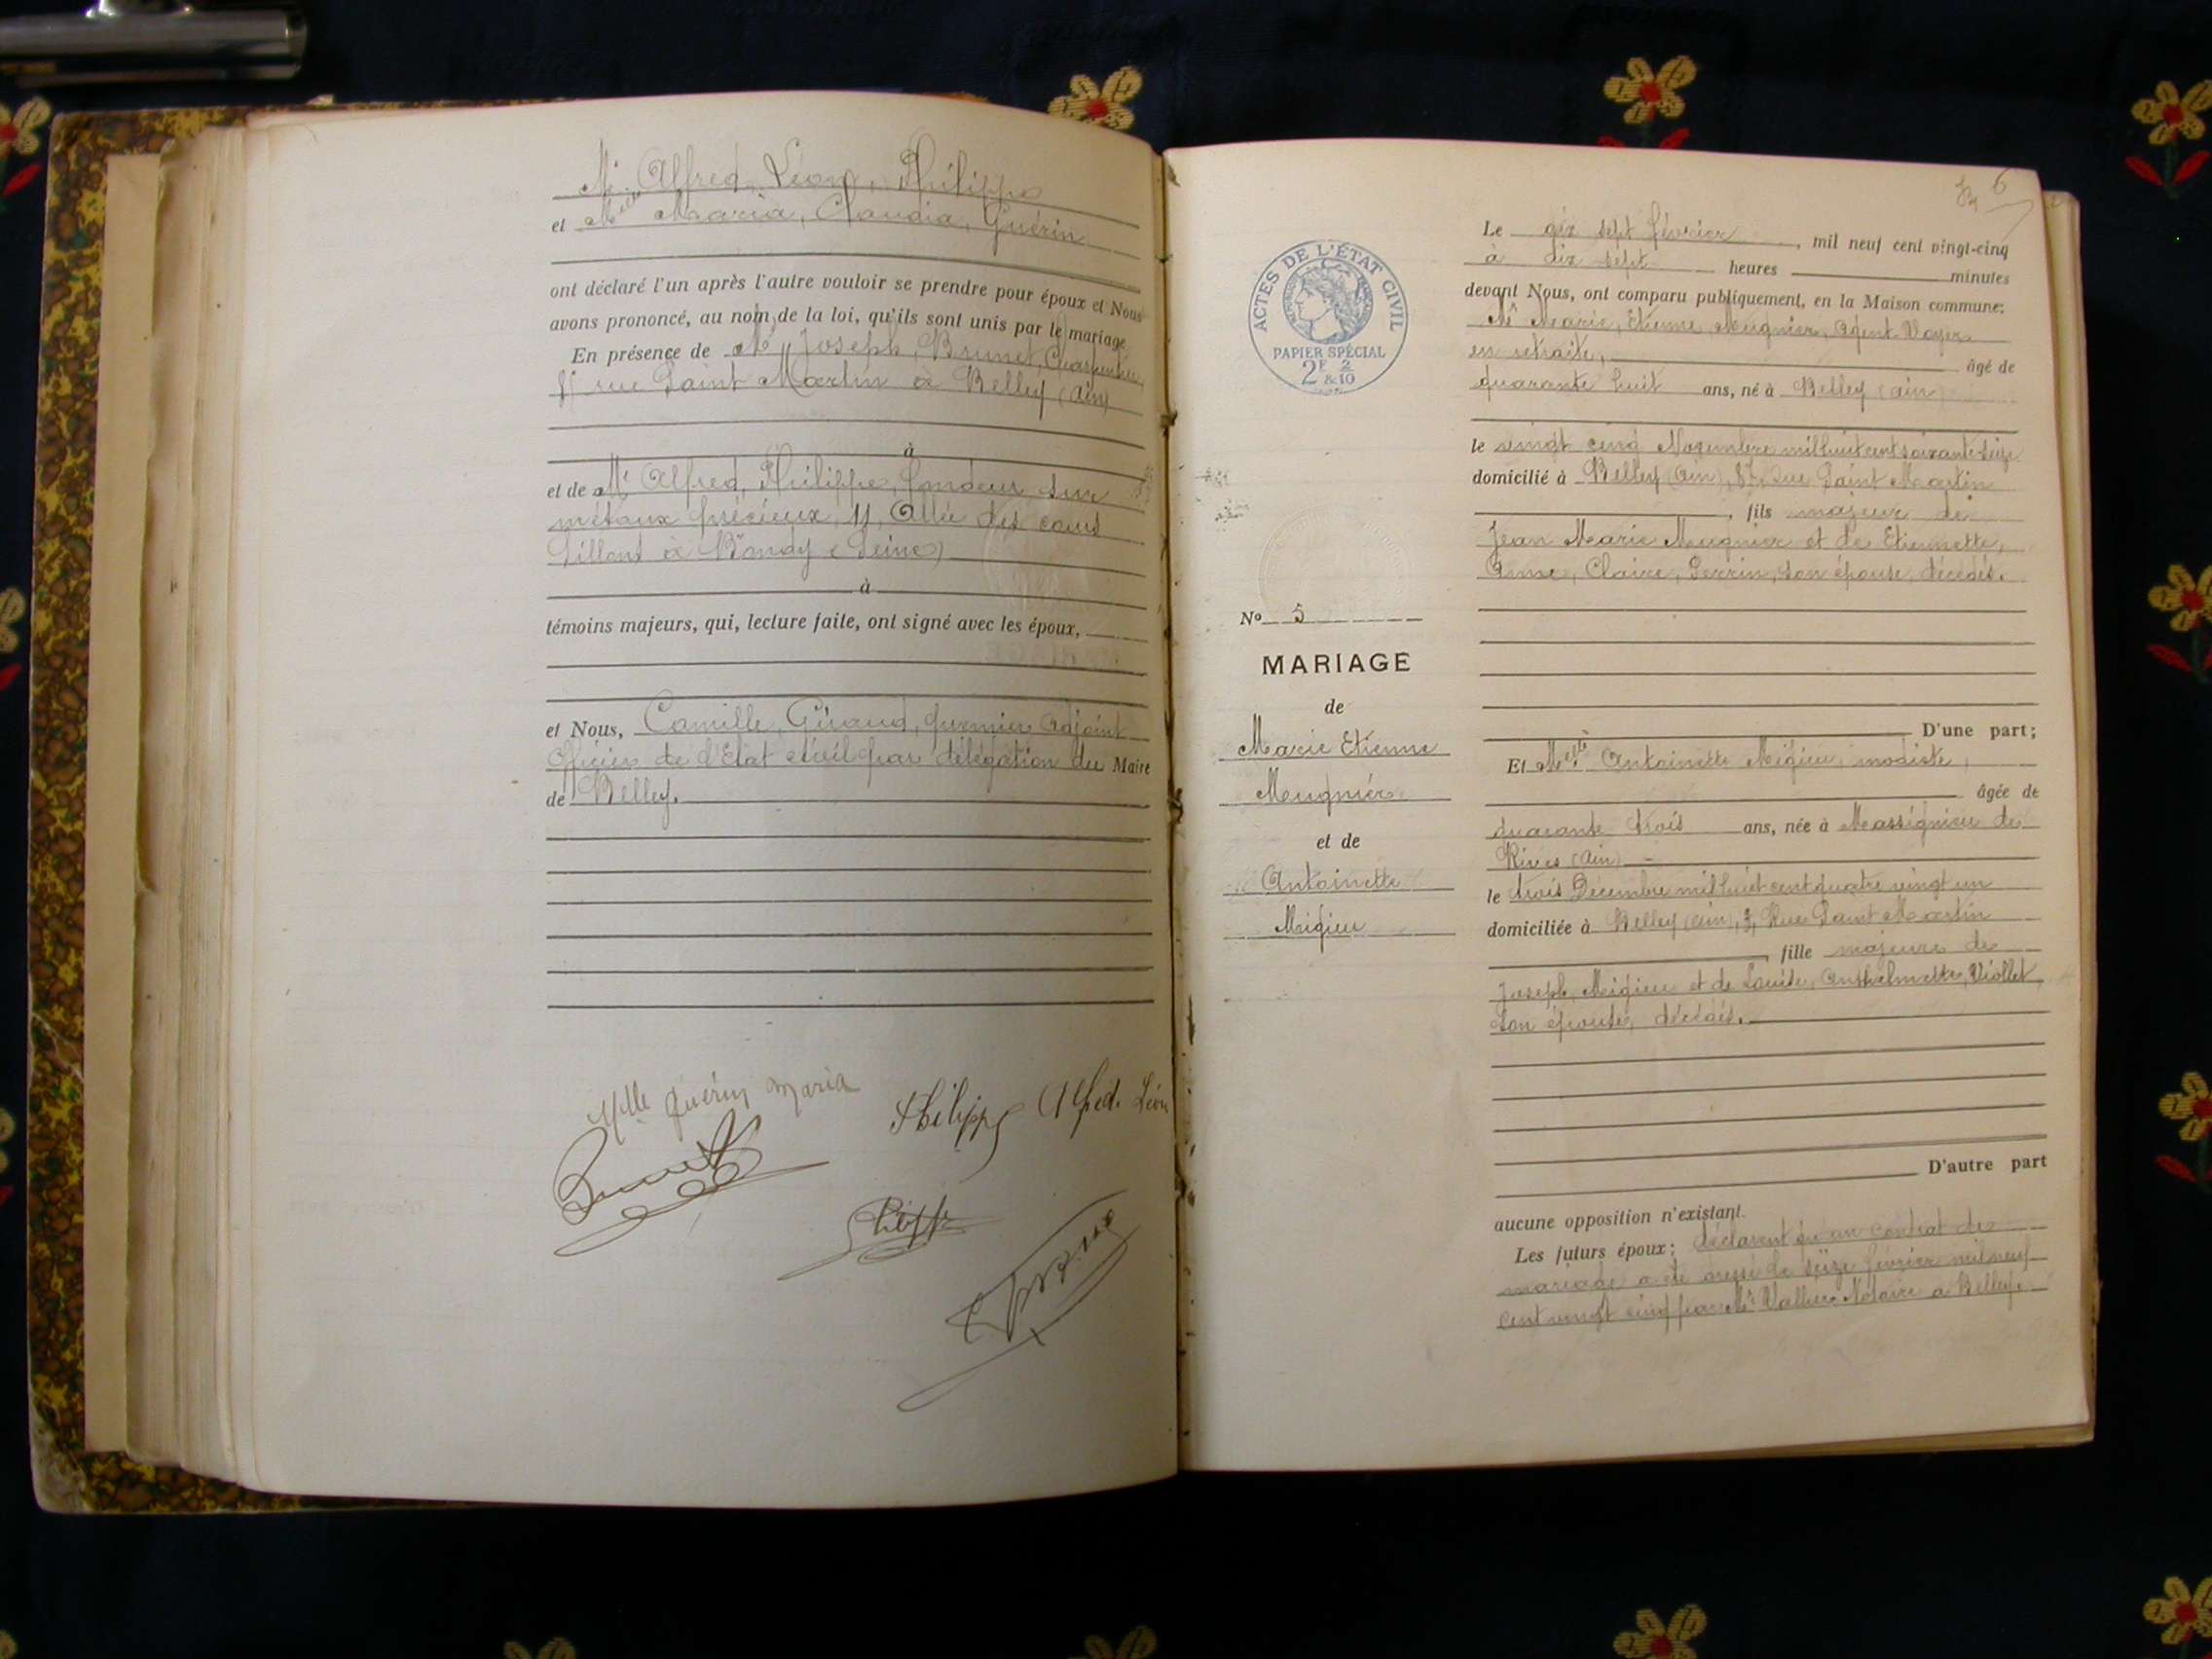 Mr Alfred, Léon, Philippe
et Melle Maria, Claudia, Guérin
ont déclaré l'un après l'autre vouloir se prendre pour époux et Nous
avons prononcé, au nom de la loi, qu'ils sont unis par le mariage.
En présence de Mr Joseph, Brunet, Charpentier,
rue Saint Martin à Belley (Ain)
à
et de Mr Alfred, Philippe, fondeur sur
métaux précieux, 11, Allée des
à Bondy (Seine)
à
témoins majeurs, qui, lecture faite, ont signé avec les époux,
et Nous, Camille, Giraud, premier Adjoint
Officier de l'Etat civil par délégation du Maire
de Belley.
Mlle Guérin Maria
Philippe Alfred. Léon
Brunet
6
ACTES DE L'ÉTAT CIVIL
PAPIER SPÉCIAL
2F 2/10
&
No 5
MARIAGE
de
Marie Etienne
Meugnier
et de
Antoinette
Migieu
Le dix sept février, mil neuf cent vingt-cinq
à dix sept heures minutes
devant Nous, ont comparu publiquement, en la Maison commune:
Mr Marie, Etienne, Meugnier, Agent-Voyer
en retraite, âgé de
quarante huit ans, né à Belley (Ain)
le vingt cinq Novembre mil huit cent soixante seize
domicilié à Belley (Ain), Rue Saint Martin
, fils majeur de
Jean Marie Meugnier et de Etiennette,
Anne, Claire, Perrin, son épouse, décédés.
D'une part;
Et Melle Antoinette Migieu, modiste,
âgée de
quarante trois ans, née à Massignieu de
Rives (Ain)
le trois Décembre mil huit cent quatre vingt un
domiciliée à Belley (Ain), 3, Rue Saint Martin
, fille majeure de
Joseph, Migieu et de Louise, Anthelmette, Viollet
son épouse, décédés.
D'autre part
aucune opposition n'existant.
Les futurs époux; déclarent qu'un contrat de
mariage a été dressé le seize février mil neuf
cent vingt cinq par Me Notaire a Belley.